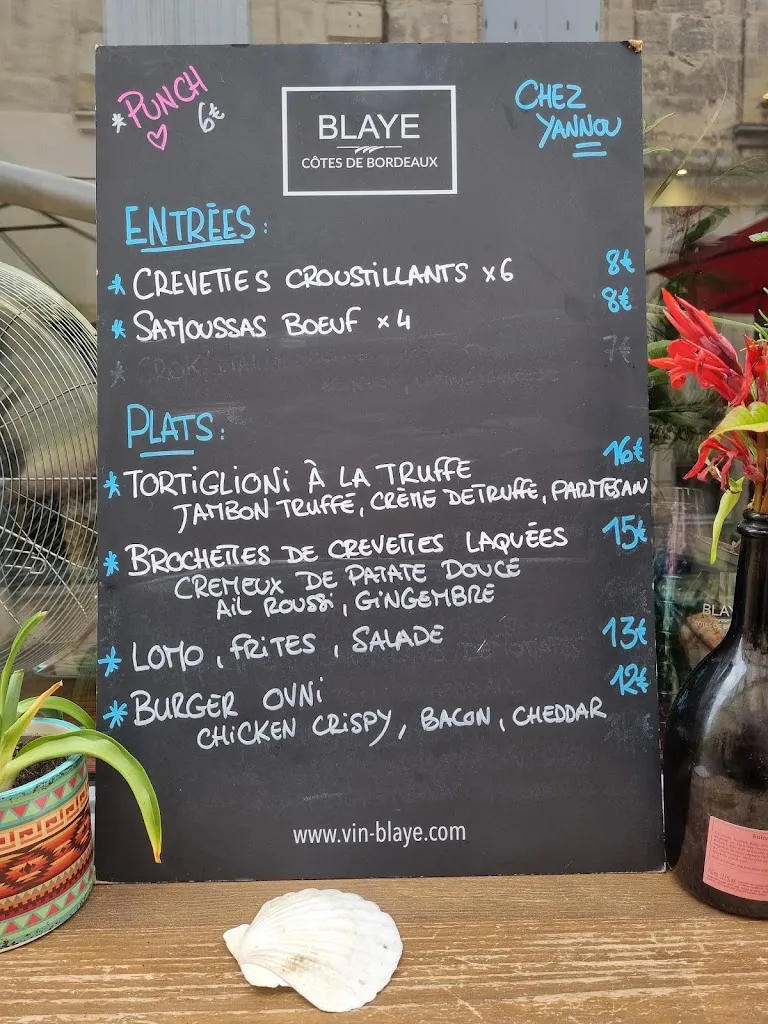 *PUNCH 6€
BLAYE
CÔTES DE BORDEAUX
CHEZ
YANNOU
ENTRÉES :
* CREVETTES CROUSTILLANTS x6 8€
* SAMOUSSAS BOEUF x4 8€
* 7€
PLATS :
* TORTIGLIONI À LA TRUFFE 16€
JAMBON TRUFFE, CRÈME DE TRUFFE, PARMESAN
* BROCHETTES DE CREVETTES LAQUÉES 15€
CREMEUX DE PATATE DOUCE
AIL ROUSSI, GINGEMBRE
* LOMO, FRITES, SALADE 13€
* BURGER OVNI 12€
CHICKEN CRISPY, BACON, CHEDDAR
www.vin-blaye.com